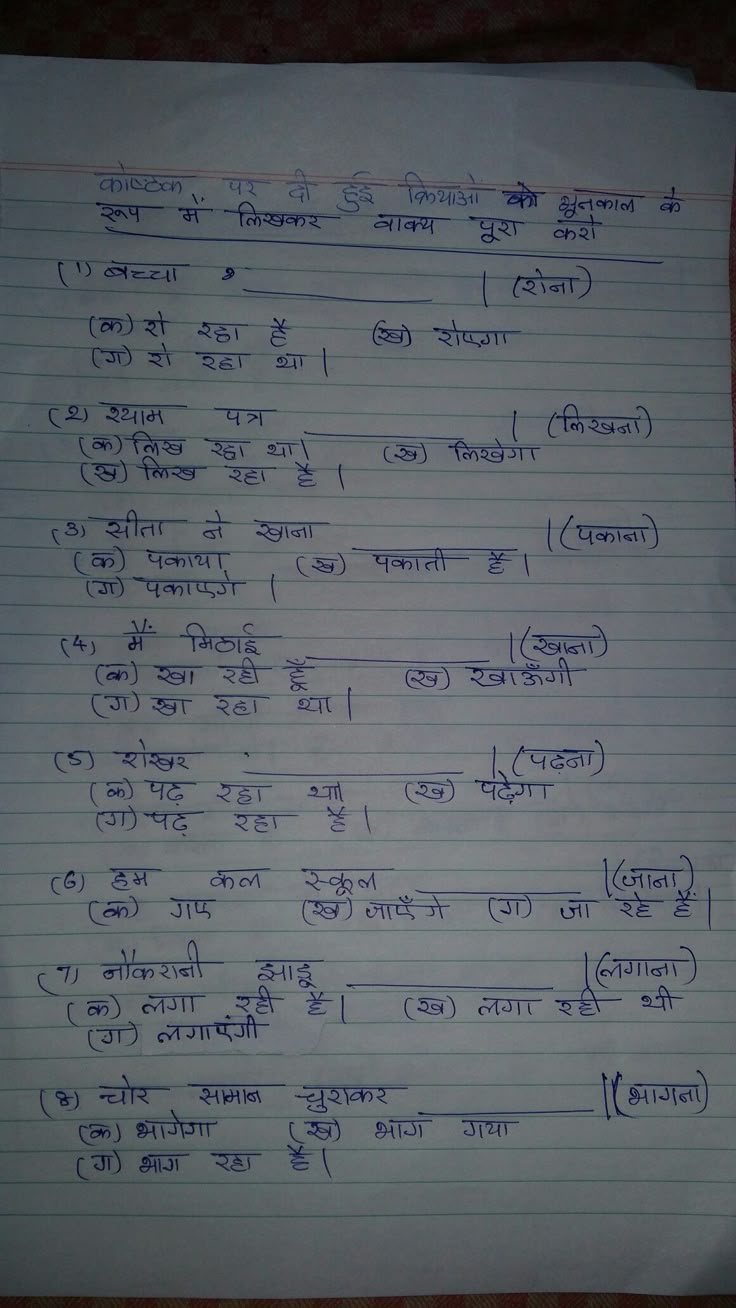 कोष्ठक पर दी हुई क्रियाओ को भूतकाल के
रूप में लिखकर वाक्य पूरा करो
(1) बच्चा ____________ | (रोना)
(क) रो रहा है (ख) रोएगा
(ग) रो रहा था |
(2) श्याम पत्र ____________ | (लिखना)
(क) लिख रहा था | (ख) लिखेगा
(ख) लिख रहा है |
(3) सीता ने खाना ____________ | (पकाना)
(क) पकाया (ख) पकाती है |
(ग) पकाएगे |
(4) मैं मिठाई ____________ | (खाना)
(क) खा रही हूँ (ख) खाऊँगी
(ग) खा रहा था |
(5) शेखर ____________ | (पढ़ना)
(क) पढ़ रहा था | (ख) पढ़ेगा
(ग) पढ़ रहा है |
(6) हम कल स्कूल ____________ | (जाना)
(क) गए (ख) जाएँगे (ग) जा रहे हैं |
(7) नौकरानी झाडू ____________ | (लगाना)
(क) लगा रही है | (ख) लगा रही थी
(ग) लगाएंगी
(8) चोर सामान चुराकर ____________ | (भागना)
(क) भागेगा (ख) भाग गया
(ग) भाग रहा है |